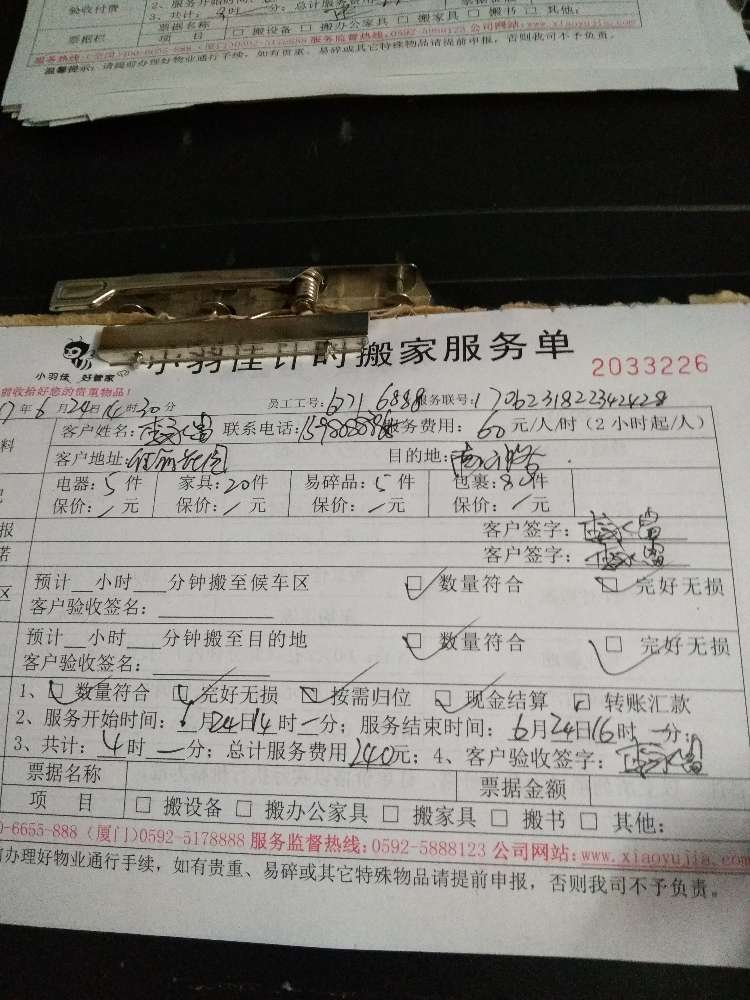 验收付费
2、服务开始时间:
3、共计: 时 分;总计服务费
票据栏 票据名称
项 目 □ 搬设备 □ 搬办公家具 □ 搬家具 □ 搬书 □ 其他:
服务监督热线:0592-5888123 公司网站:www.xiaoyujia.com
温馨提示:请提前办理好物业通行手续,如有贵重、易碎或其它特殊物品请提前申报,否则我司不予负责。
小羽佳计时搬家服务单 2033226
小羽佳 好管家
前收拾好您的贵重物品!
17年6月24日14时30分 员工工号:6716888 服务联号:1706231822342428
料 客户姓名: 联系电话: 服务费用:60元/人/时(2小时起/人)
客户地址: 目的地:
电器:5件 家具:20件 易碎品:5件 包裹:80件
保价:/元 保价:/元 保价:/元 保价:/元
报 客户签字:
诺 客户签字:
区 预计__小时___分钟搬至候车区 □ 数量符合 □ 完好无损
客户验收签名:
预计__小时___分钟搬至目的地 □ 数量符合 □ 完好无损
客户验收签名:
1、□ 数量符合 □ 完好无损 □ 按需归位 □ 现金结算 □ 转账汇款
2、服务开始时间:6月24日14时一分;服务结束时间:6月24日16时一分;
3、共计:4时一分;总计服务费用240元;4、客户验收签字:
票据名称 票据金额
项 目 □ 搬设备 □ 搬办公家具 □ 搬家具 □ 搬书 □ 其他:
0-6655-888(厦门)0592-5178888 服务监督热线:0592-5888123 公司网站:www.xiaoyujia.com
前办理好物业通行手续,如有贵重、易碎或其它特殊物品请提前申报,否则我司不予负责。